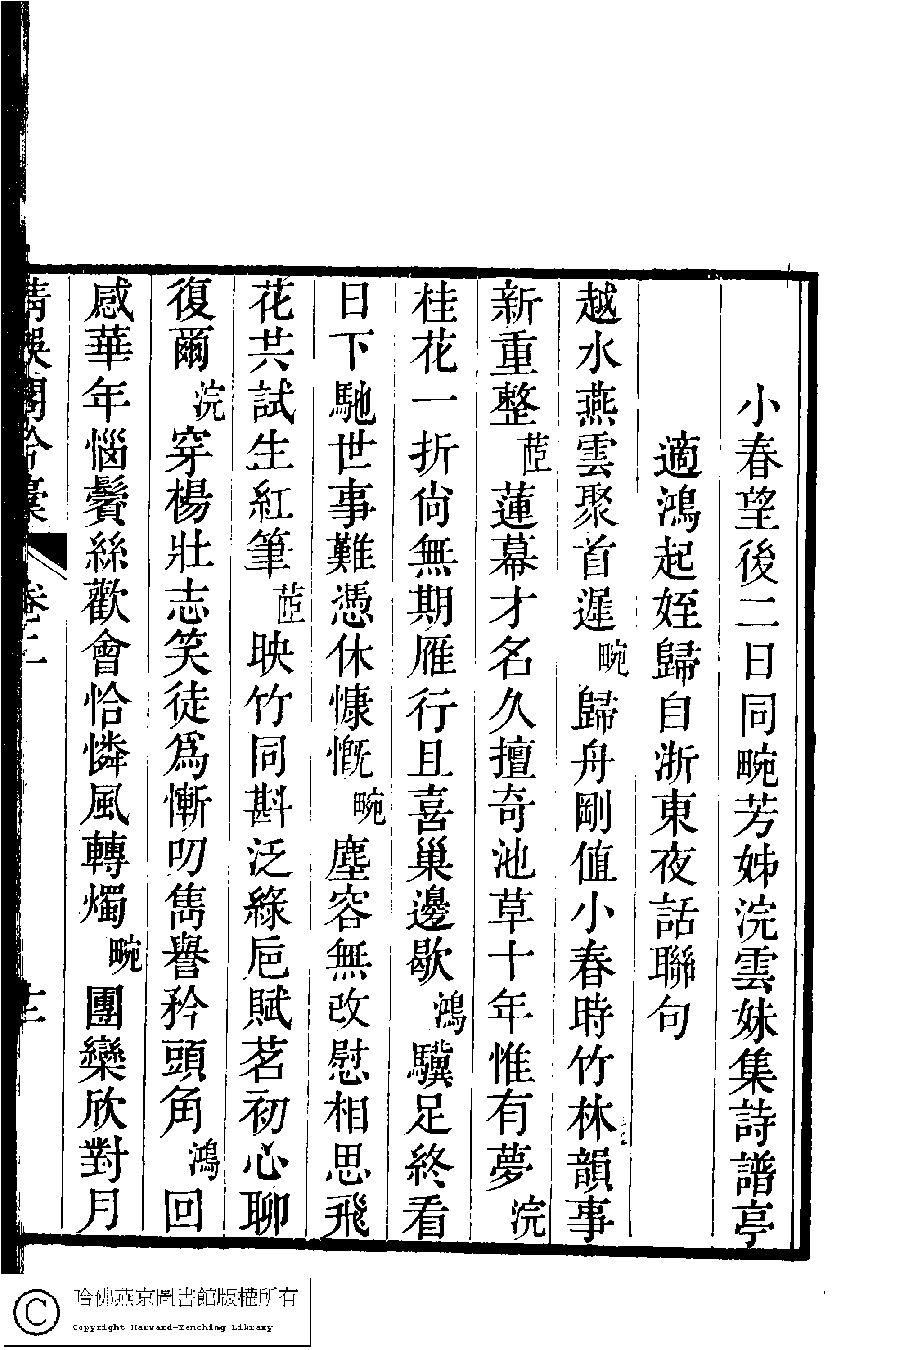 小春望後二日同畹芳姊浣雲妹集詩譜亭
適鴻起姪歸自浙東夜話聯句
越水燕雲聚首遲畹歸舟剛值小春時竹林韻事
新重整茞蓮幕才名久擅奇池草十年惟有夢浣
桂花一折尙無期雁行且喜巢邊歇鴻驥足終看
日下馳世事難憑休慷慨畹塵容無改慰相思飛
花共試生紅筆茞映竹同斟泛綠卮賦茗初心聊
復爾浣穿楊壯志笑徒爲慚叨雋譽矜頭角鴻回
感華年惱鬢絲歡會恰憐風轉燭畹團欒欣對月
卷二
十二
哈佛燕京圖書館版權所有
Copyright Harvard-Yenching Library